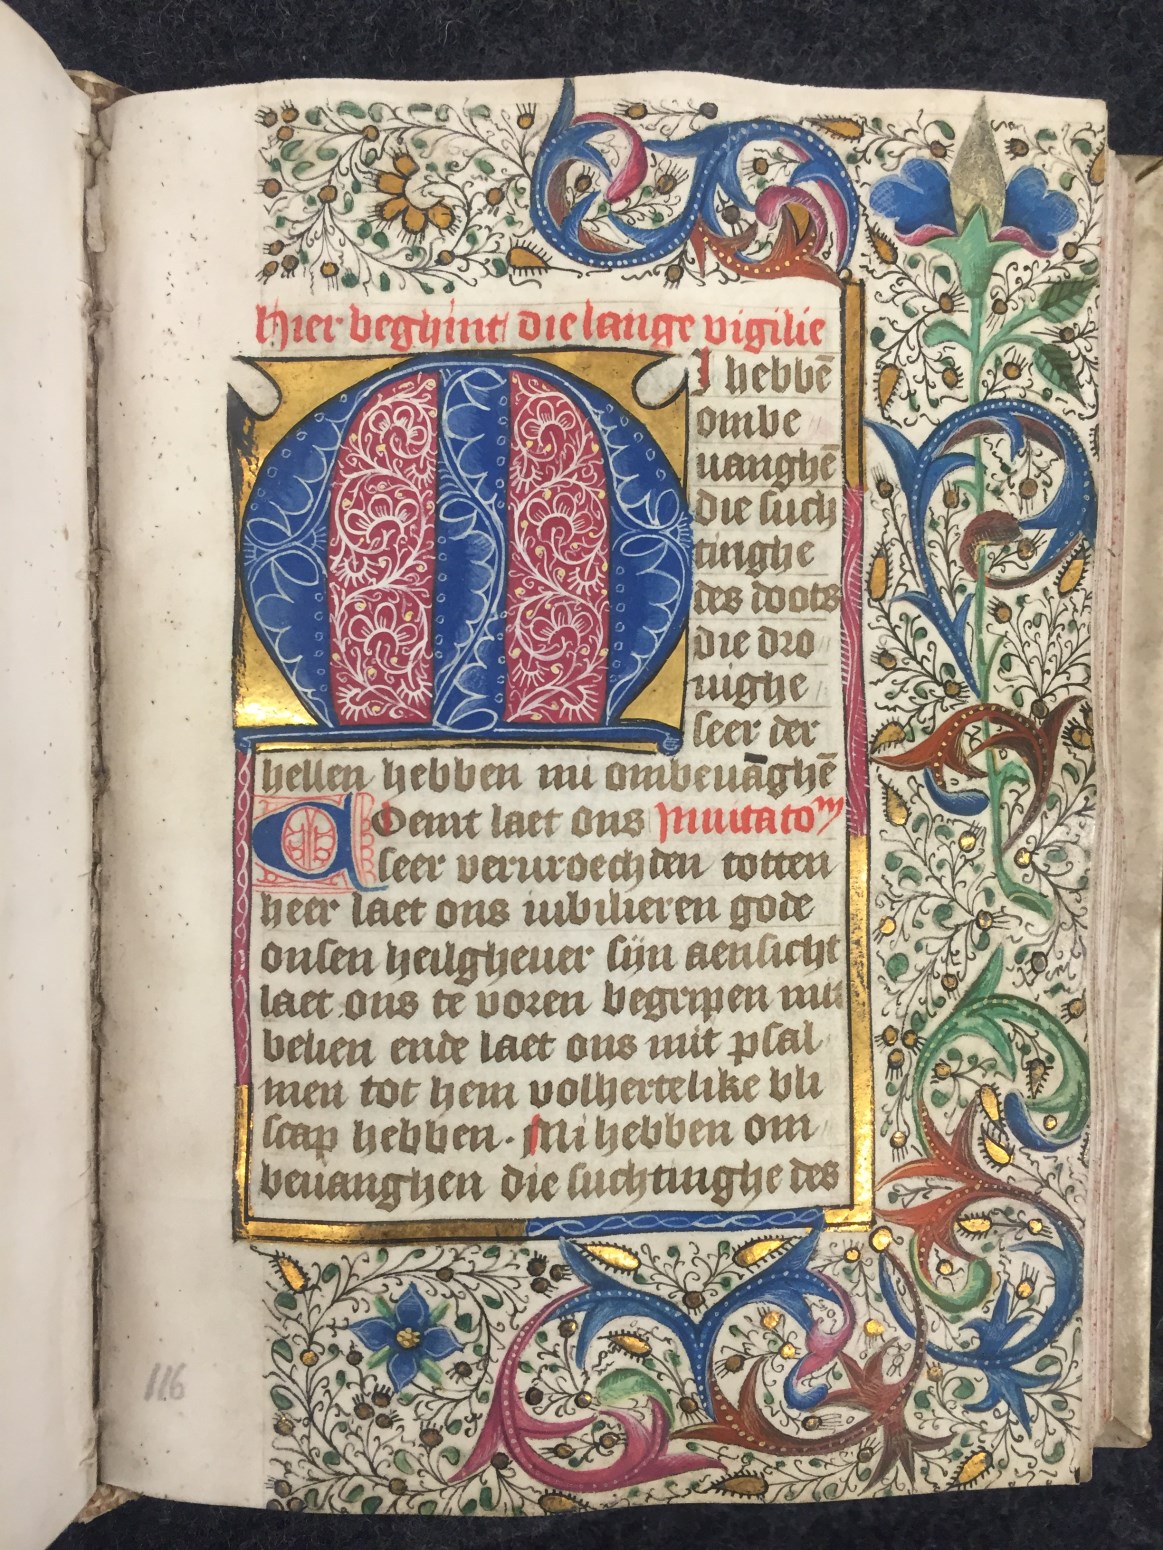 hier beghint die lange vigilie
MI hebbē
ombe
uanghē
die such
tinghe
des doots
die dro
uighe
seer der
hellen hebben mi ombeuāghē
Coemt laet ons Inuitatoᵐ
seer veruroechden totten
heer laet ons iubilieren gode
onsen heilgheuer sijn aensicht
laet ons te voren begripen mit
belien ende laet ons mit psal
men tot hem volhertelike bli
scap hebben. Mi hebben om
beuanghen die suchtinghe des
116